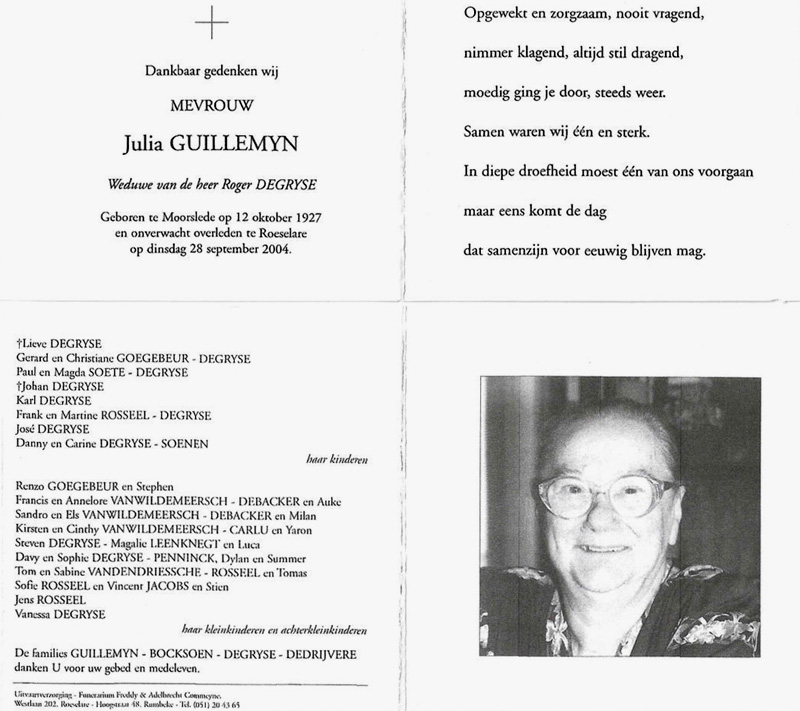 Dankbaar gedenken wij
MEVROUW
Julia GUILLEMYN
Weduwe van de heer Roger DEGRYSE
Geboren te Moorslede op 12 oktober 1927
en onverwacht overleden te Roeselare
op dinsdag 28 september 2004.
Opgewekt en zorgzaam, nooit vragend,
nimmer klagend, altijd stil dragend,
moedig ging je door, steeds weer.
Samen waren wij één en sterk.
In diepe droefheid moest één van ons voorgaan
maar eens komt de dag
dat samenzijn voor eeuwig blijven mag.
†Lieve DEGRYSE
Gerard en Christiane GOEGEBEUR - DEGRYSE
Paul en Magda SOETE - DEGRYSE
†Johan DEGRYSE
Karl DEGRYSE
Frank en Martine ROSSEEL - DEGRYSE
José DEGRYSE
Danny en Carine DEGRYSE - SOENEN
haar kinderen
Renzo GOEGEBEUR en Stephen
Francis en Annelore VANWILDEMEERSCH - DEBACKER en Auke
Sandro en Els VANWILDEMEERSCH - DEBACKER en Milan
Kirsten en Cinthy VANWILDEMEERSCH - CARLU en Yaron
Steven DEGRYSE - Magalie LEENKNEGT en Luca
Davy en Sophie DEGRYSE - PENNINCK, Dylan en Summer
Tom en Sabine VANDENDRIESSCHE - ROSSEEL en Tomas
Sofie ROSSEEL en Vincent JACOBS en Stien
Jens ROSSEEL
Vanessa DEGRYSE
haar kleinkinderen en achterkleinkinderen
De families GUILLEMYN - BOCKSOEN - DEGRYSE - DEDRIJVERE
danken U voor uw gebed en medeleven.
Uitvaartverzorging - Funerarium Freddy & Adelbrecht Commeyne,
Westlaan 202, Roeselare - Hoogstraat 48, Rumbeke - Tel. (051) 20 43 65